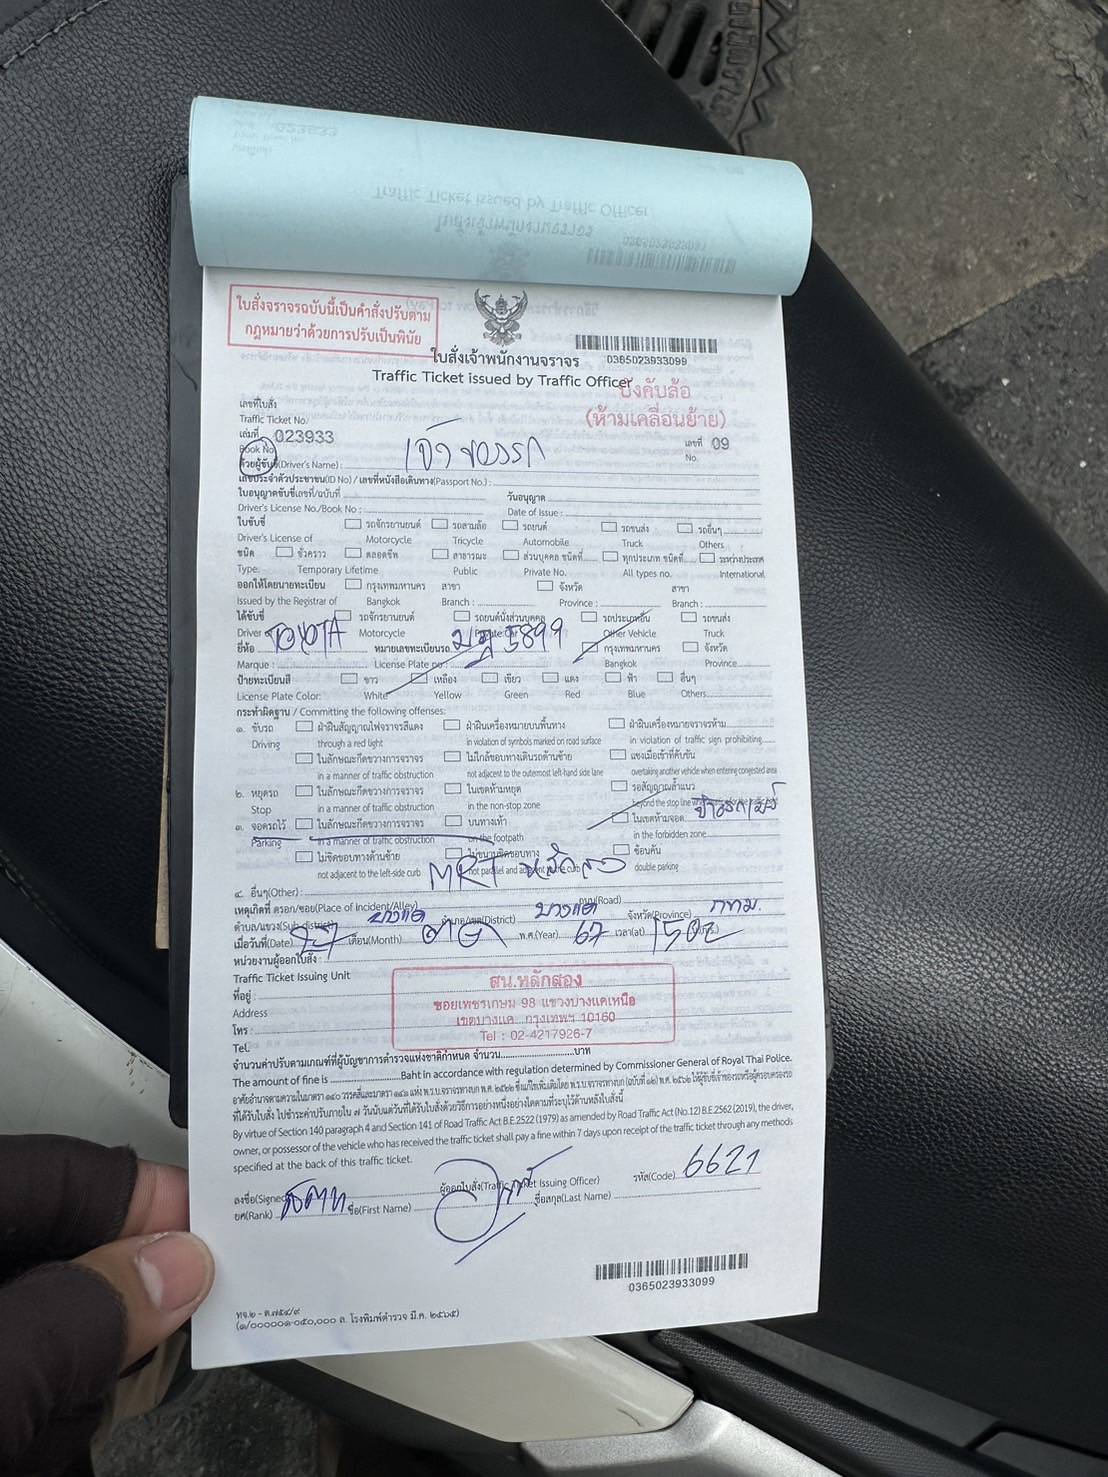 ใบสั่งจราจรฉบับนี้เป็นคำสั่งปรับตาม
กฎหมายว่าด้วยการปรับเป็นพินัย
0365023933099
ใบสั่งเจ้าพนักงานจราจร
Traffic Ticket issued by Traffic Officer
บังคับล้อ
(ห้ามเคลื่อนย้าย)
เลขที่ใบสั่ง
Traffic Ticket No.
เล่มที่ 023933 เลขที่ 09
Book No. No.
ด้วยผู้ขับขี่(Driver's Name) : เจ้าของรถ
เลขประจำตัวประชาชน(ID No) / เลขที่หนังสือเดินทาง(Passport No.) :
ใบอนุญาตขับขี่เลขที่/ฉบับที่ วันอนุญาต
Driver's License No./Book No : Date of Issue :
ใบขับขี่ รถจักรยานยนต์ รถสามล้อ รถยนต์ รถขนส่ง รถอื่นๆ
Driver's License of Motorcycle Tricycle Automobile Truck Others
ชนิด ชั่วคราว ตลอดชีพ สาธารณะ ส่วนบุคคล ชนิดที่ ทุกประเภท ชนิดที่ ระหว่างประเทศ
Type: Temporary Lifetime Public Private No. All types no. International
ออกให้โดยนายทะเบียน กรุงเทพมหานคร สาขา จังหวัด สาขา
Issued by the Registrar of Bangkok Branch : Province : Branch :
ได้ขับขี่ รถจักรยานยนต์ รถยนต์นั่งส่วนบุคคล รถประเภทอื่น รถขนส่ง
Driver of Motorcycle Private Car Other Vehicle Truck
ยี่ห้อ TOYOTA หมายเลขทะเบียนรถ 5899 กรุงเทพมหานคร จังหวัด
Marque : License Plate no : Bangkok Province
ป้ายทะเบียนสี ขาว เหลือง เขียว แดง ฟ้า อื่นๆ
License Plate Color: White Yellow Green Red Blue Others
กระทำผิดฐาน / Committing the following offenses:
๑. ขับรถ ฝ่าฝืนสัญญาณไฟจราจรสีแดง ฝ่าฝืนเครื่องหมายบนพื้นทาง ฝ่าฝืนเครื่องหมายจราจรห้าม
Driving through a red light in violation of symbols marked on road surface in violation of traffic sign prohibiting
ในลักษณะกีดขวางการจราจร ไม่ใกล้ขอบทางเดินรถด้านซ้าย แซงเมื่อเข้าที่คับขัน
in a manner of traffic obstruction not adjacent to the outermost left-hand side lane overtaking another vehicle when entering congested area
๒. หยุดรถ ในลักษณะกีดขวางการจราจร ในเขตห้ามหยุด รอสัญญาณล้ำแนว
Stop in a manner of traffic obstruction in the non-stop zone beyond the stop line
๓. จอดรถไว้ ในลักษณะกีดขวางการจราจร บนทางเท้า ในเขตห้ามจอด
Parking in a manner of traffic obstruction on the footpath in the forbidden zone
ไม่ชิดขอบทางด้านซ้าย ไม่ขนานชิดขอบทาง ซ้อนคัน
not adjacent to the left-side curb not parallel and adjacent to the curb double parking
๔. อื่นๆ(Other) : MRT หลักสอง
เหตุเกิดที่ ตรอก/ซอย(Place of Incident/Alley) ถนน(Road)
ตำบล/แขวง(Sub-district) บางแค อำเภอ/เขต(District) บางแค จังหวัด(Province) กทม.
เมื่อวันที่(Date) เดือน(Month) พ.ศ.(Year) 67 เวลา(at) 1502
หน่วยงานผู้ออกใบสั่ง :
Traffic Ticket Issuing Unit
สน.หลักสอง
ที่อยู่ : ซอยเพชรเกษม 98 แขวงบางแคเหนือ
Address เขตบางแค กรุงเทพฯ 10160
โทร : Tel : 02-4217926-7
Tel.
จำนวนค่าปรับตามเกณฑ์ที่ผู้บัญชาการตำรวจแห่งชาติกำหนด จำนวน บาท
The amount of fine is Baht in accordance with regulation determined by Commissioner General of Royal Thai Police.
อาศัยอำนาจตามความในมาตรา ๑๔๐ วรรคสี่และมาตรา ๑๔๑ แห่ง พ.ร.บ.จราจรทางบก พ.ศ. ๒๕๒๒ ซึ่งแก้ไขเพิ่มเติมโดย พ.ร.บ.จราจรทางบก (ฉบับที่ ๑๒) พ.ศ. ๒๕๖๒ ให้ผู้ขับขี่เจ้าของรถหรือผู้ครอบครองรถ
ที่ได้รับใบสั่ง ไปชำระค่าปรับภายใน ๗ วันนับแต่วันที่ได้รับใบสั่งด้วยวิธีการอย่างหนึ่งอย่างใดตามที่ระบุไว้ด้านหลังใบสั่งนี้
By virtue of Section 140 paragraph 4 and Section 141 of Road Traffic Act B.E.2522 (1979) as amended by Road Traffic Act (No.12) B.E.2562 (2019), the driver,
owner, or possessor of the vehicle who has received the traffic ticket shall pay a fine within 7 days upon receipt of the traffic ticket through any methods
specified at the back of this traffic ticket.
ลงชื่อ(Signed) ผู้ออกใบสั่ง(Traffic Ticket Issuing Officer) รหัส(Code) 6621
ยศ(Rank) ชื่อ(First Name) ชื่อสกุล(Last Name)
0365023933099
ทจ.๒ - ต.๗๕๔/๙
(๑/๐๐๐๐๐๑-๐๕๐,๐๐๐ ล. โรงพิมพ์ตำรวจ มี.ค. ๒๕๖๕)